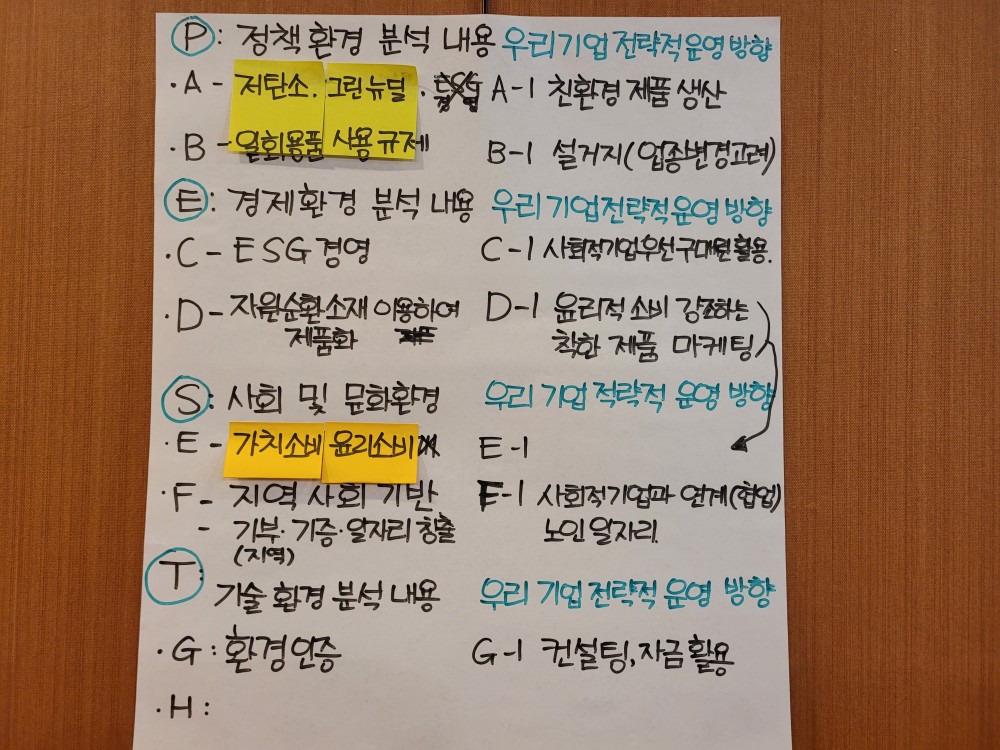 P: 정책환경 분석 내용 우리기업 전략적 운영 방향
·A - 저탄소. 그린뉴딜. A-1 친환경 제품 생산
·B - 일회용품 사용 규제 B-1 설거지(업종변경고려)
E: 경제환경 분석 내용 우리 기업전략적 운영 방향
·C - ESG 경영 C-1 사회적기업우선구매 활용.
·D - 자원순환소재 이용하여 D-1 윤리적 소비 강조하는
제품화 착한 제품 마케팅
S: 사회 및 문화환경 우리 기업 적략적 운영 방향
·E - 가치소비 윤리소비 E-1
·F - 지역 사회 기반 F-1 사회적기업과 연계(협업)
- 기부·기증·일자리 창출 노인 일자리.
(지역)
T:
기술 환경 분석 내용 우리 기업 전략적 운영 방향
·G: 환경인증 G-1 컨설팅, 자금 활용
·H: